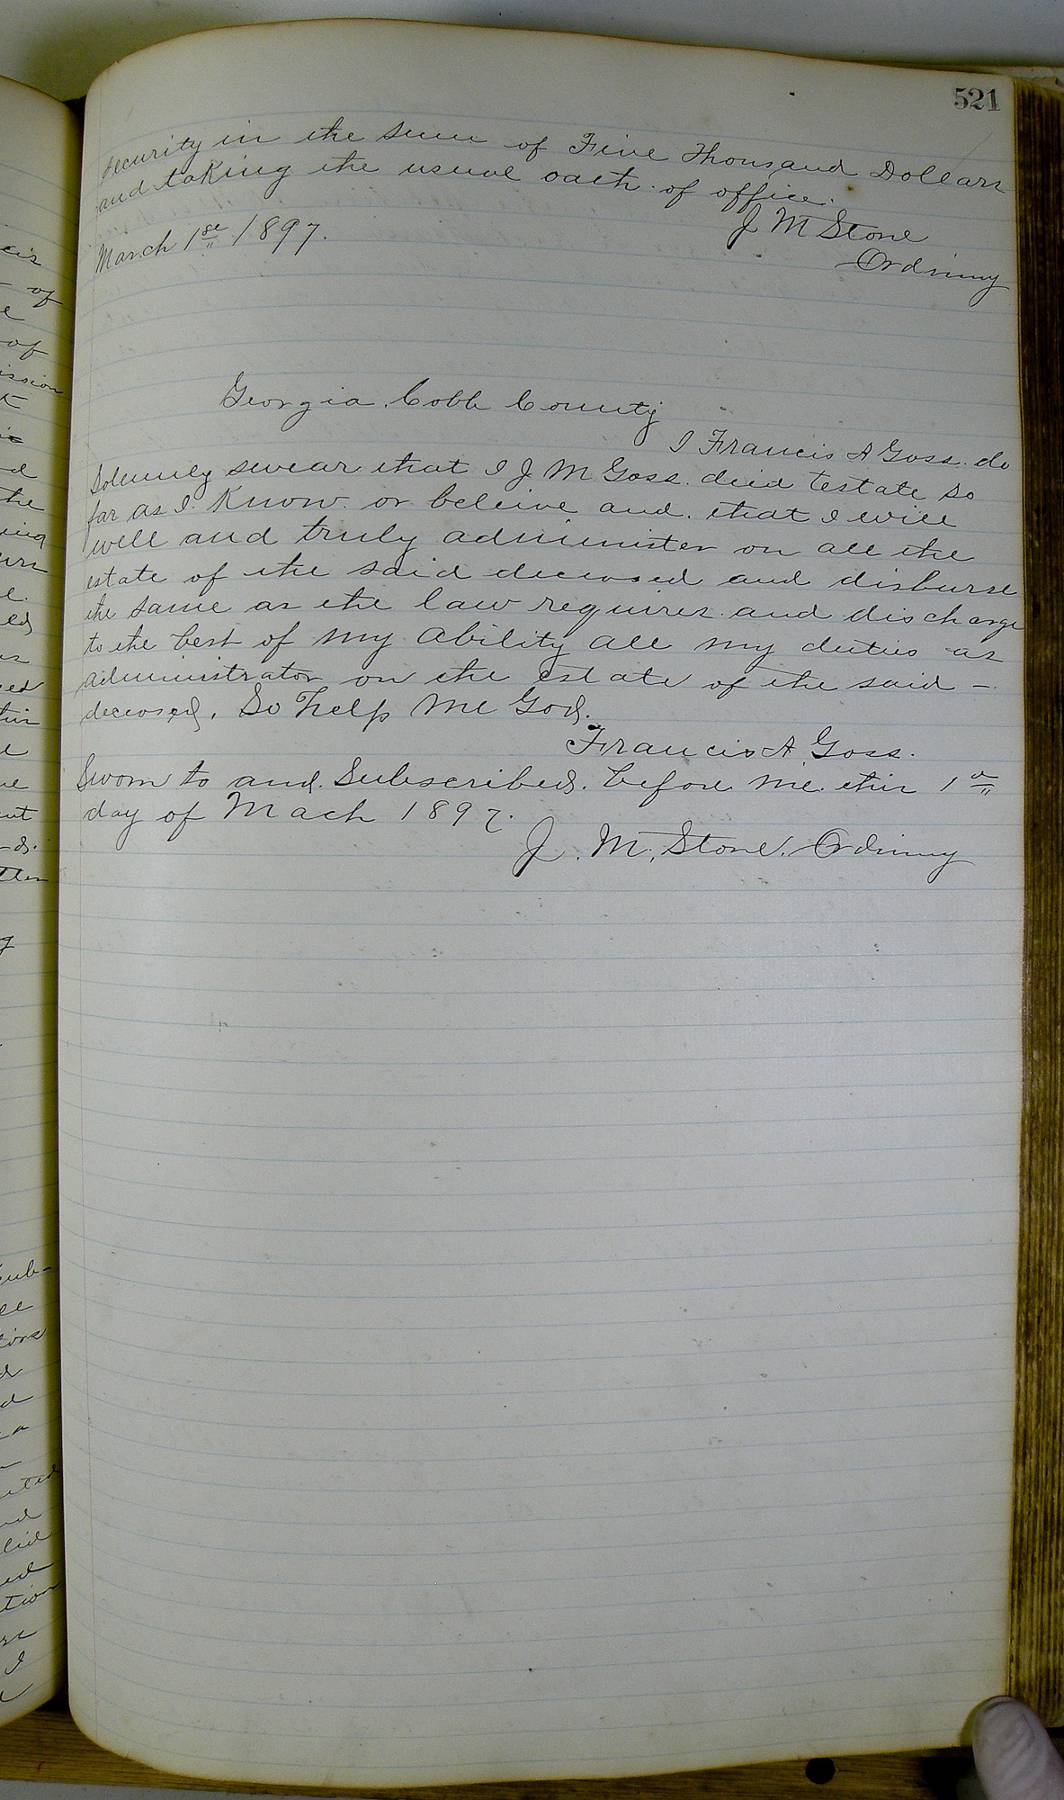 521
security in the sum of Five Thousand Dollars
and taking the usual oath of office.
J M Stone
March 1st 1897.
Ordinary
Georgia. Cobb County
I Francis A Goss. do
Solemnly swear that I J M Goss. died testate so
far as I Know or beleive and that I will
well and truly administer on all the
estate of the said deceased and disburse
the same as the law requires and discharge
to the best of my ability all my duties as
administrator on the estate of the said -
deceased. So help Me God.
Francis A Goss.
Sworn to and Subscribed. before me this 1st
day of Mach 1897.
J. M. Stone. Ordinary